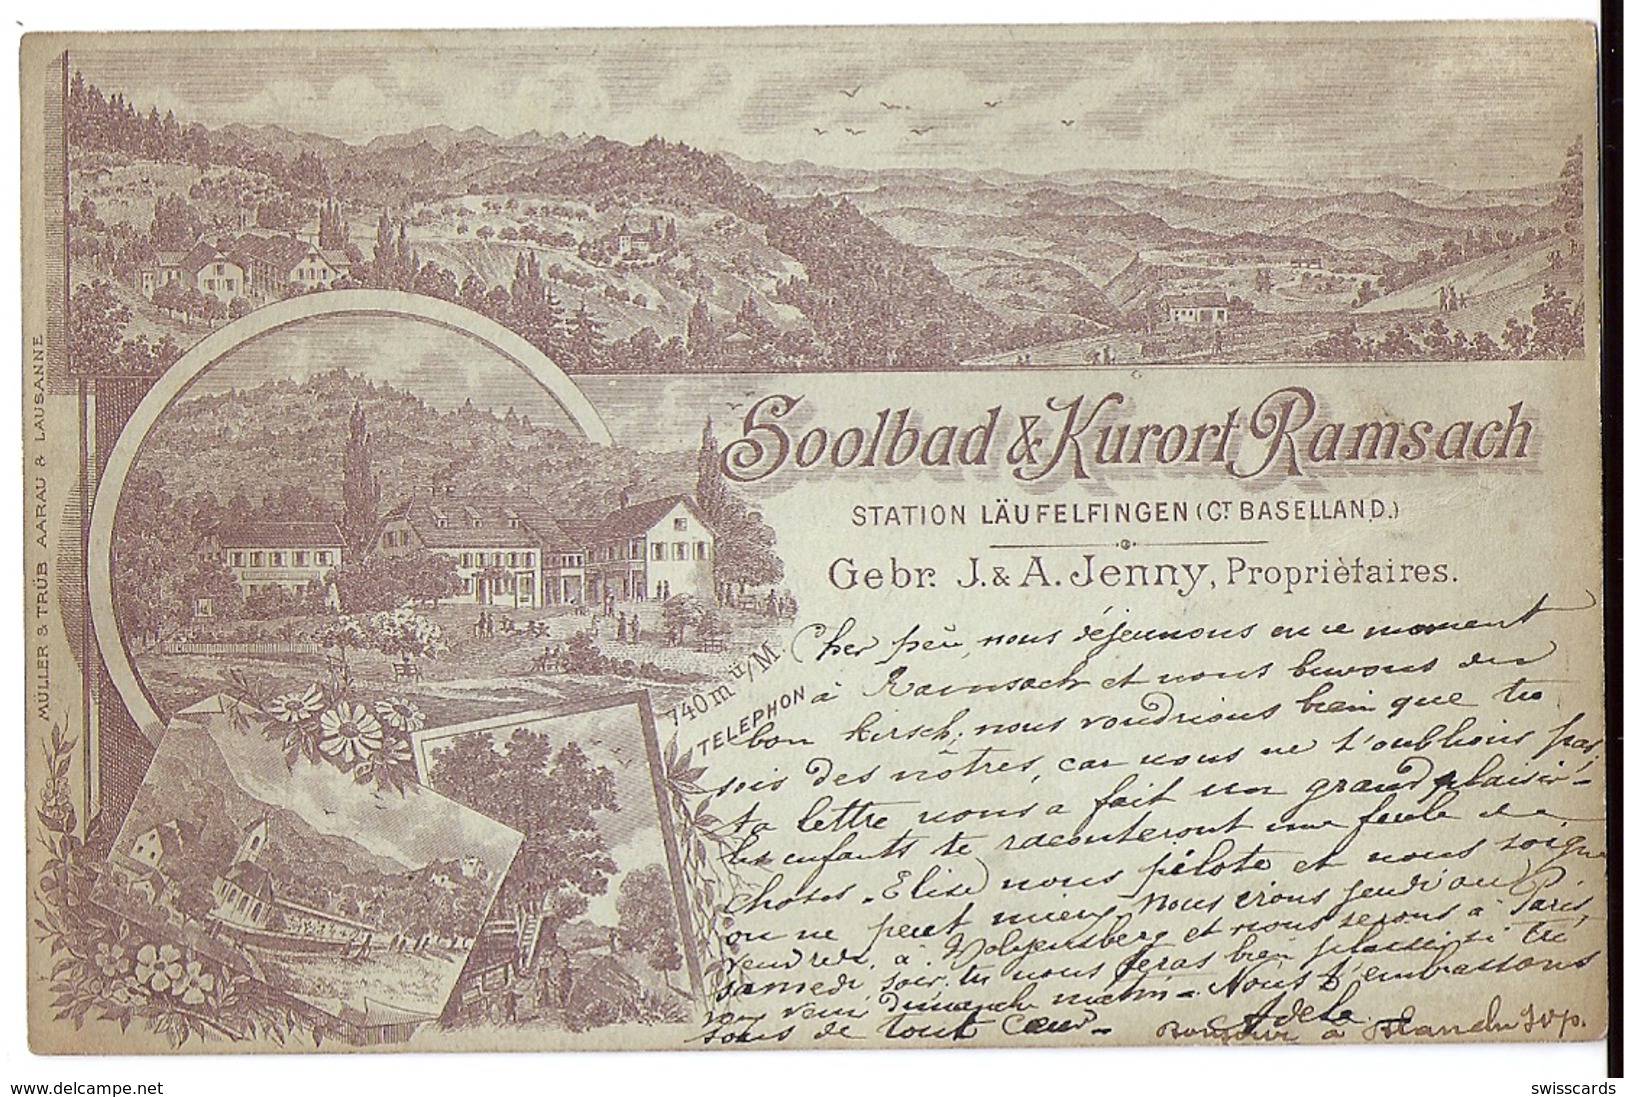 MÜLLER & TRÜB AARAU & LAUSANNE
Soolbad & Kurort Ramsach
STATION LÄUFELFINGEN (CT BASELLAND.)
Gebr. J. & A. Jenny, Propriètaires.
740 m ü/M.
TELEPHON
Cher nous déjeunons en ce moment
à Ramsach et nous buvons du
bon kirsch; nous voudrions bien que tu
sois des nôtres, car nous ne t'oublions pas,
ta lettre nous a fait un grand plaisir -
les enfants te raconteront une foule de
choses. Elise nous pilote et nous soigne
on ne peut mieux. Nous irons jeudi ou
vendredi à et nous serons à Paris
samedi soir. tu nous feras bien plaisir si tu
veni dimanche matin - Nous t'embrassons
tous de tout cœur - Adele.
Bonjour à
swisscards